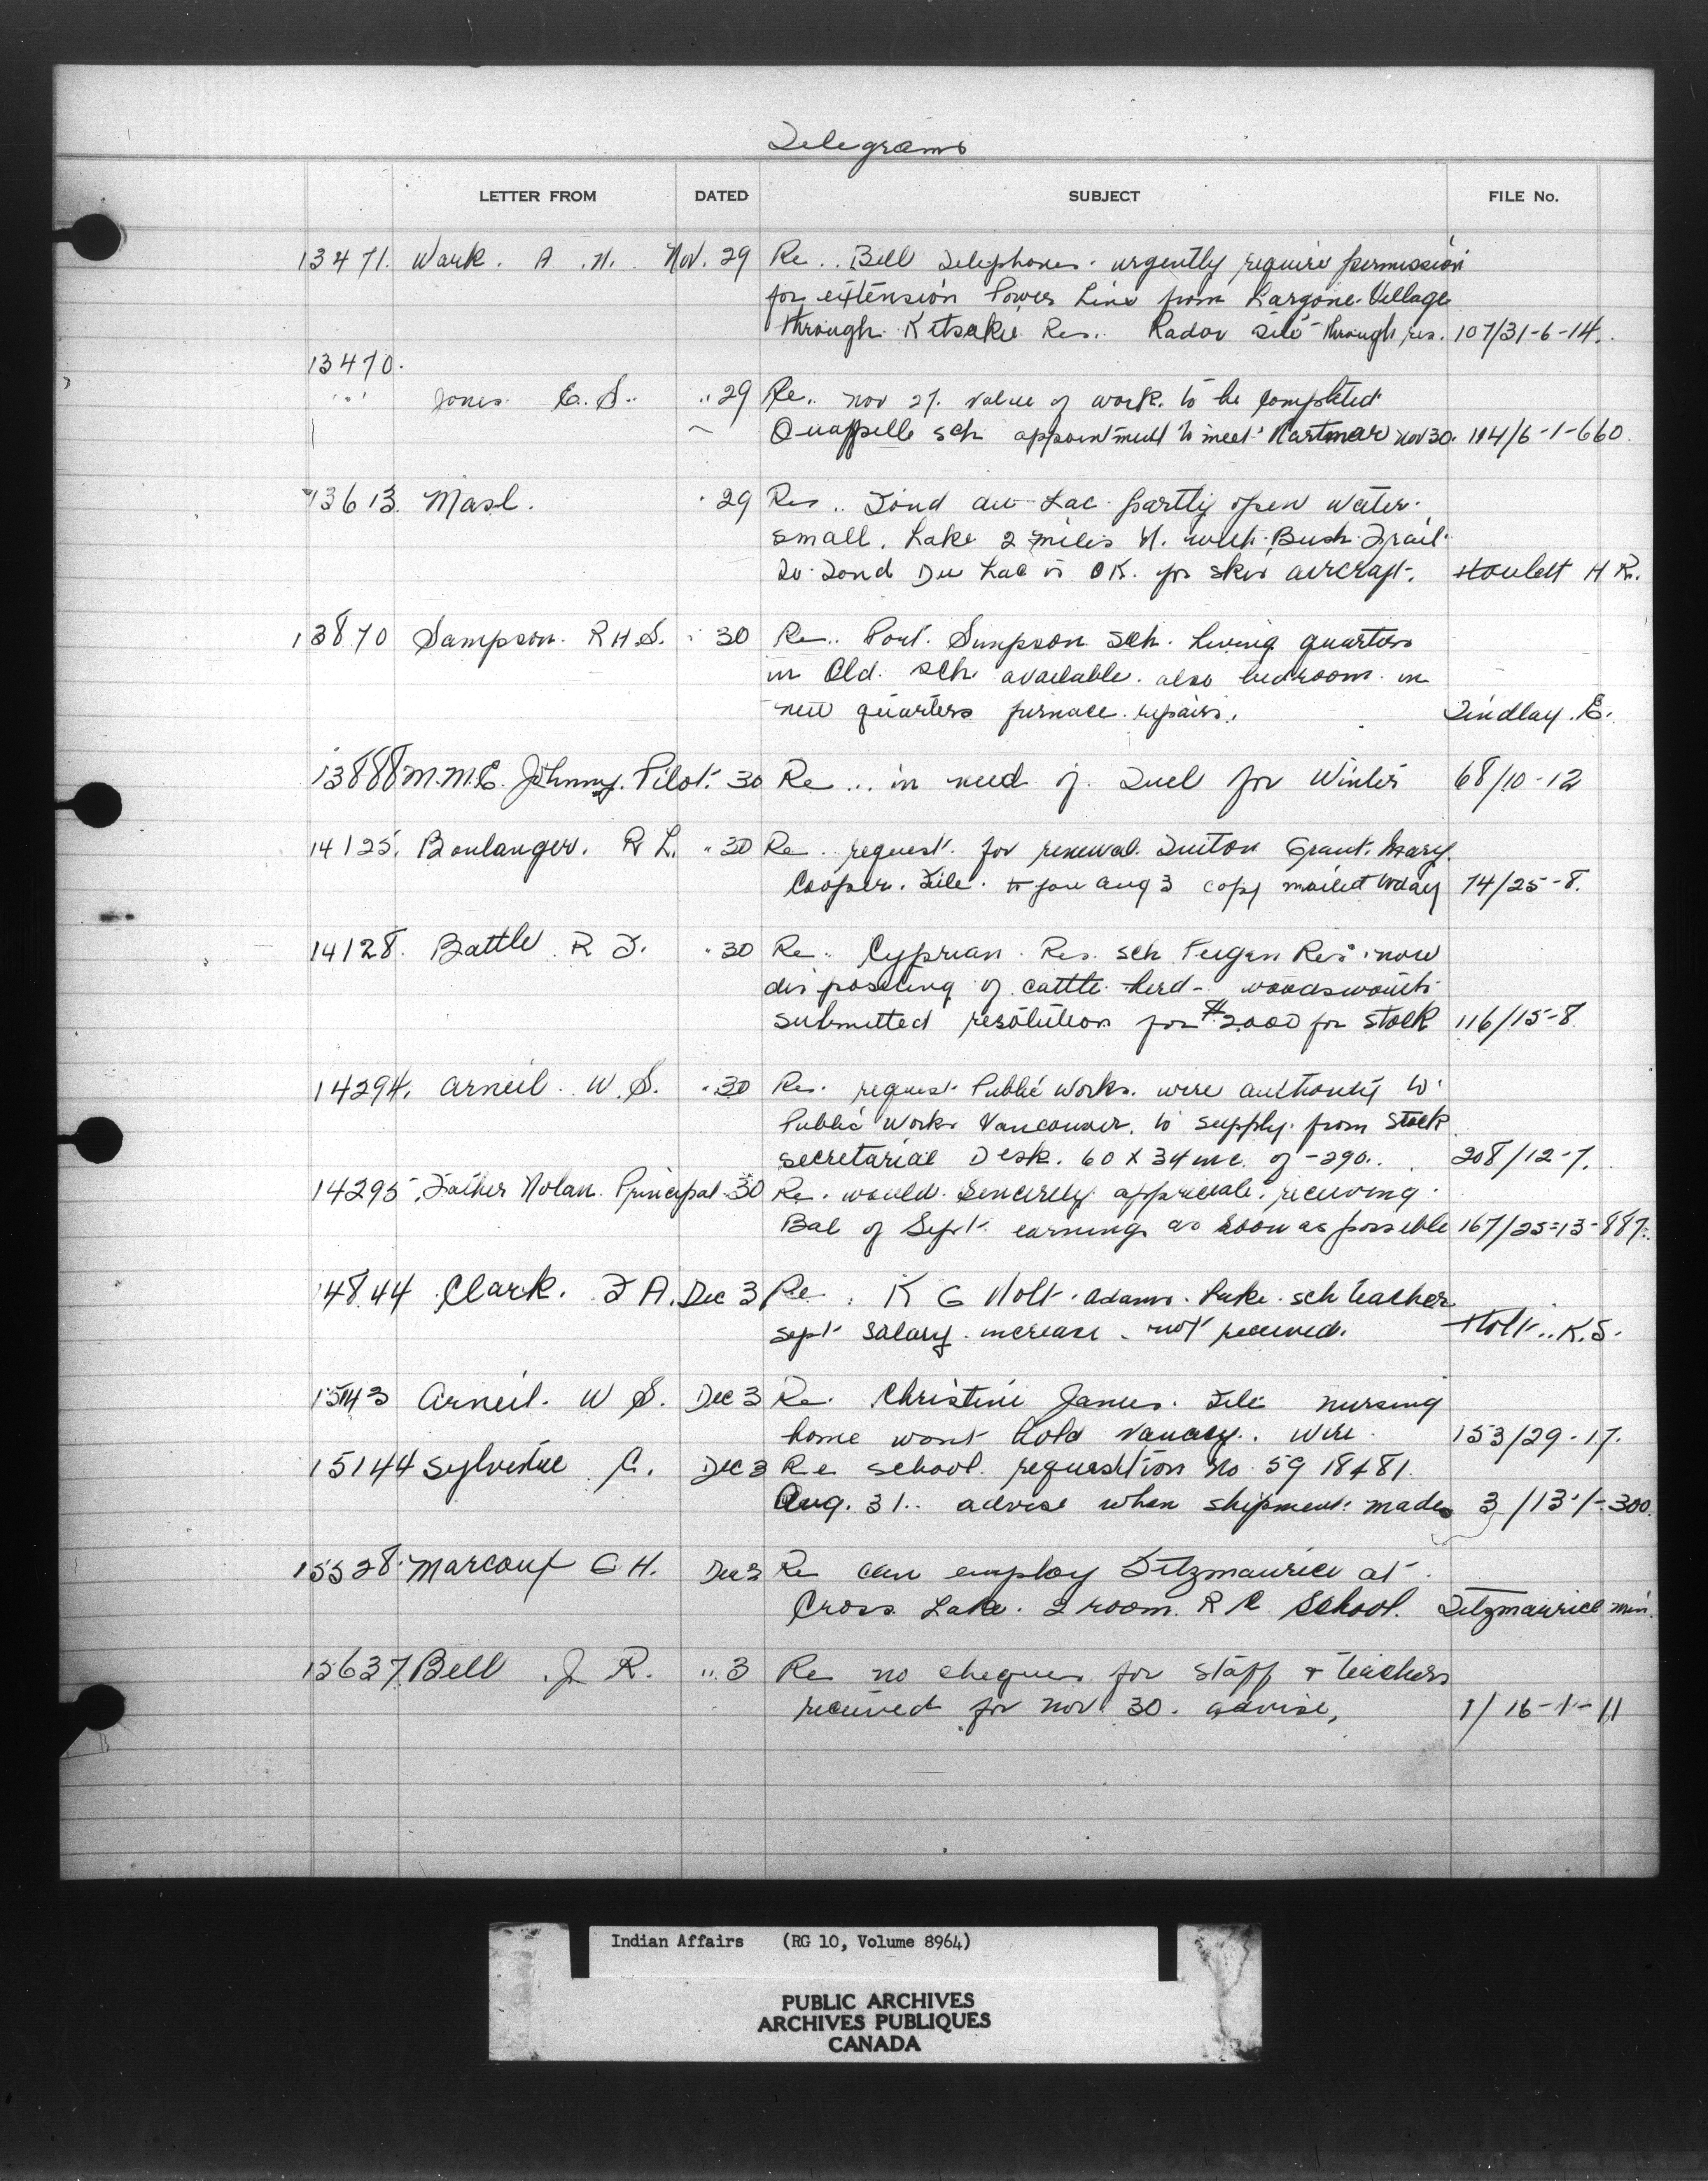 Telegrams
LETTER FROM DATED SUBJECT FILE No.
13471. Wark. A. N. Nov. 29 Re.. Bell Telephones. urgently require permission
for extension Power Line from Largone Village
through Kitsakie Res.. Radar Site through res. 107/31-6-14.
13470.
" Jones E. S. " 29 Re.. Nov 27. value of work. to be completed
Quappelle sch appointment to meet Hartman Nov 30. 114/6-1-660.
13613. Masl. " 29 Re.. Fond du Lac partly open water.
small. Lake 2 miles N. with Bush Trail
to Fond Du Lac is OK. for skis aircraft. Houlett H R.
13870 Sampson. R H S. " 30 Re.. Port. Simpson sch. living quarters
in Old. sch. available. also bedroom in
new quarters furnace repairs. Findlay. E.
13888 M.M.E. Johnny. Pilot. 30 Re... in need of. Fuel for Winter 68/10-12
14125. Boulanger. R L. " 30 Re. request. for renewal Tuiton Grant. Mary.
Cooper. File. to you Aug 3 copy mailed today 74/25-8.
14128. Battle R F. " 30 Re. Cyprian Res. sch Peigan Res. now
disposeling of cattle herd - woodsworth
submitted resolution for $2,000 for stock 116/15-8.
14294. Arneil. W. S. " 30 Re. request Public Works. wire authority to
Public Works Vancouver. to supply from stock
secretarial Desk. 60 x 34 inc. of -290.. 208/12-7.
14295. Father Nolan. Principal 30 Re. would. sincerely appreciate. receiving
Bal of Sept. earnings as soon as possible 167/25-13-887.
14844 Clark. F A. Dec 3 Re. K G Holt. Adams. Lake. sch teacher
sept salary. increase. not received. Holt.. K.S.
15143 Arneil. W S. Dec 3 Re. Christine James. File nursing
home wont hold vanacy.. Wire. 153/29-17.
15144 Sylvestre G. Dec 3 Re school. requesition No. 59 18481.
Aug. 31.. advise when shipment made 3/13-1-300.
15528. Marcoux G H. Dec 3 Re can employ Fitzmaurice at
Cross Lake. 2 room. R C School. Fitzmaurice
15637. Bell J. R. " 3 Re no cheques for staff & teachers
received for Nov 30. advise, 1/16-1-11
Indian Affairs (RG 10, Volume 8964)
PUBLIC ARCHIVES
ARCHIVES PUBLIQUES
CANADA